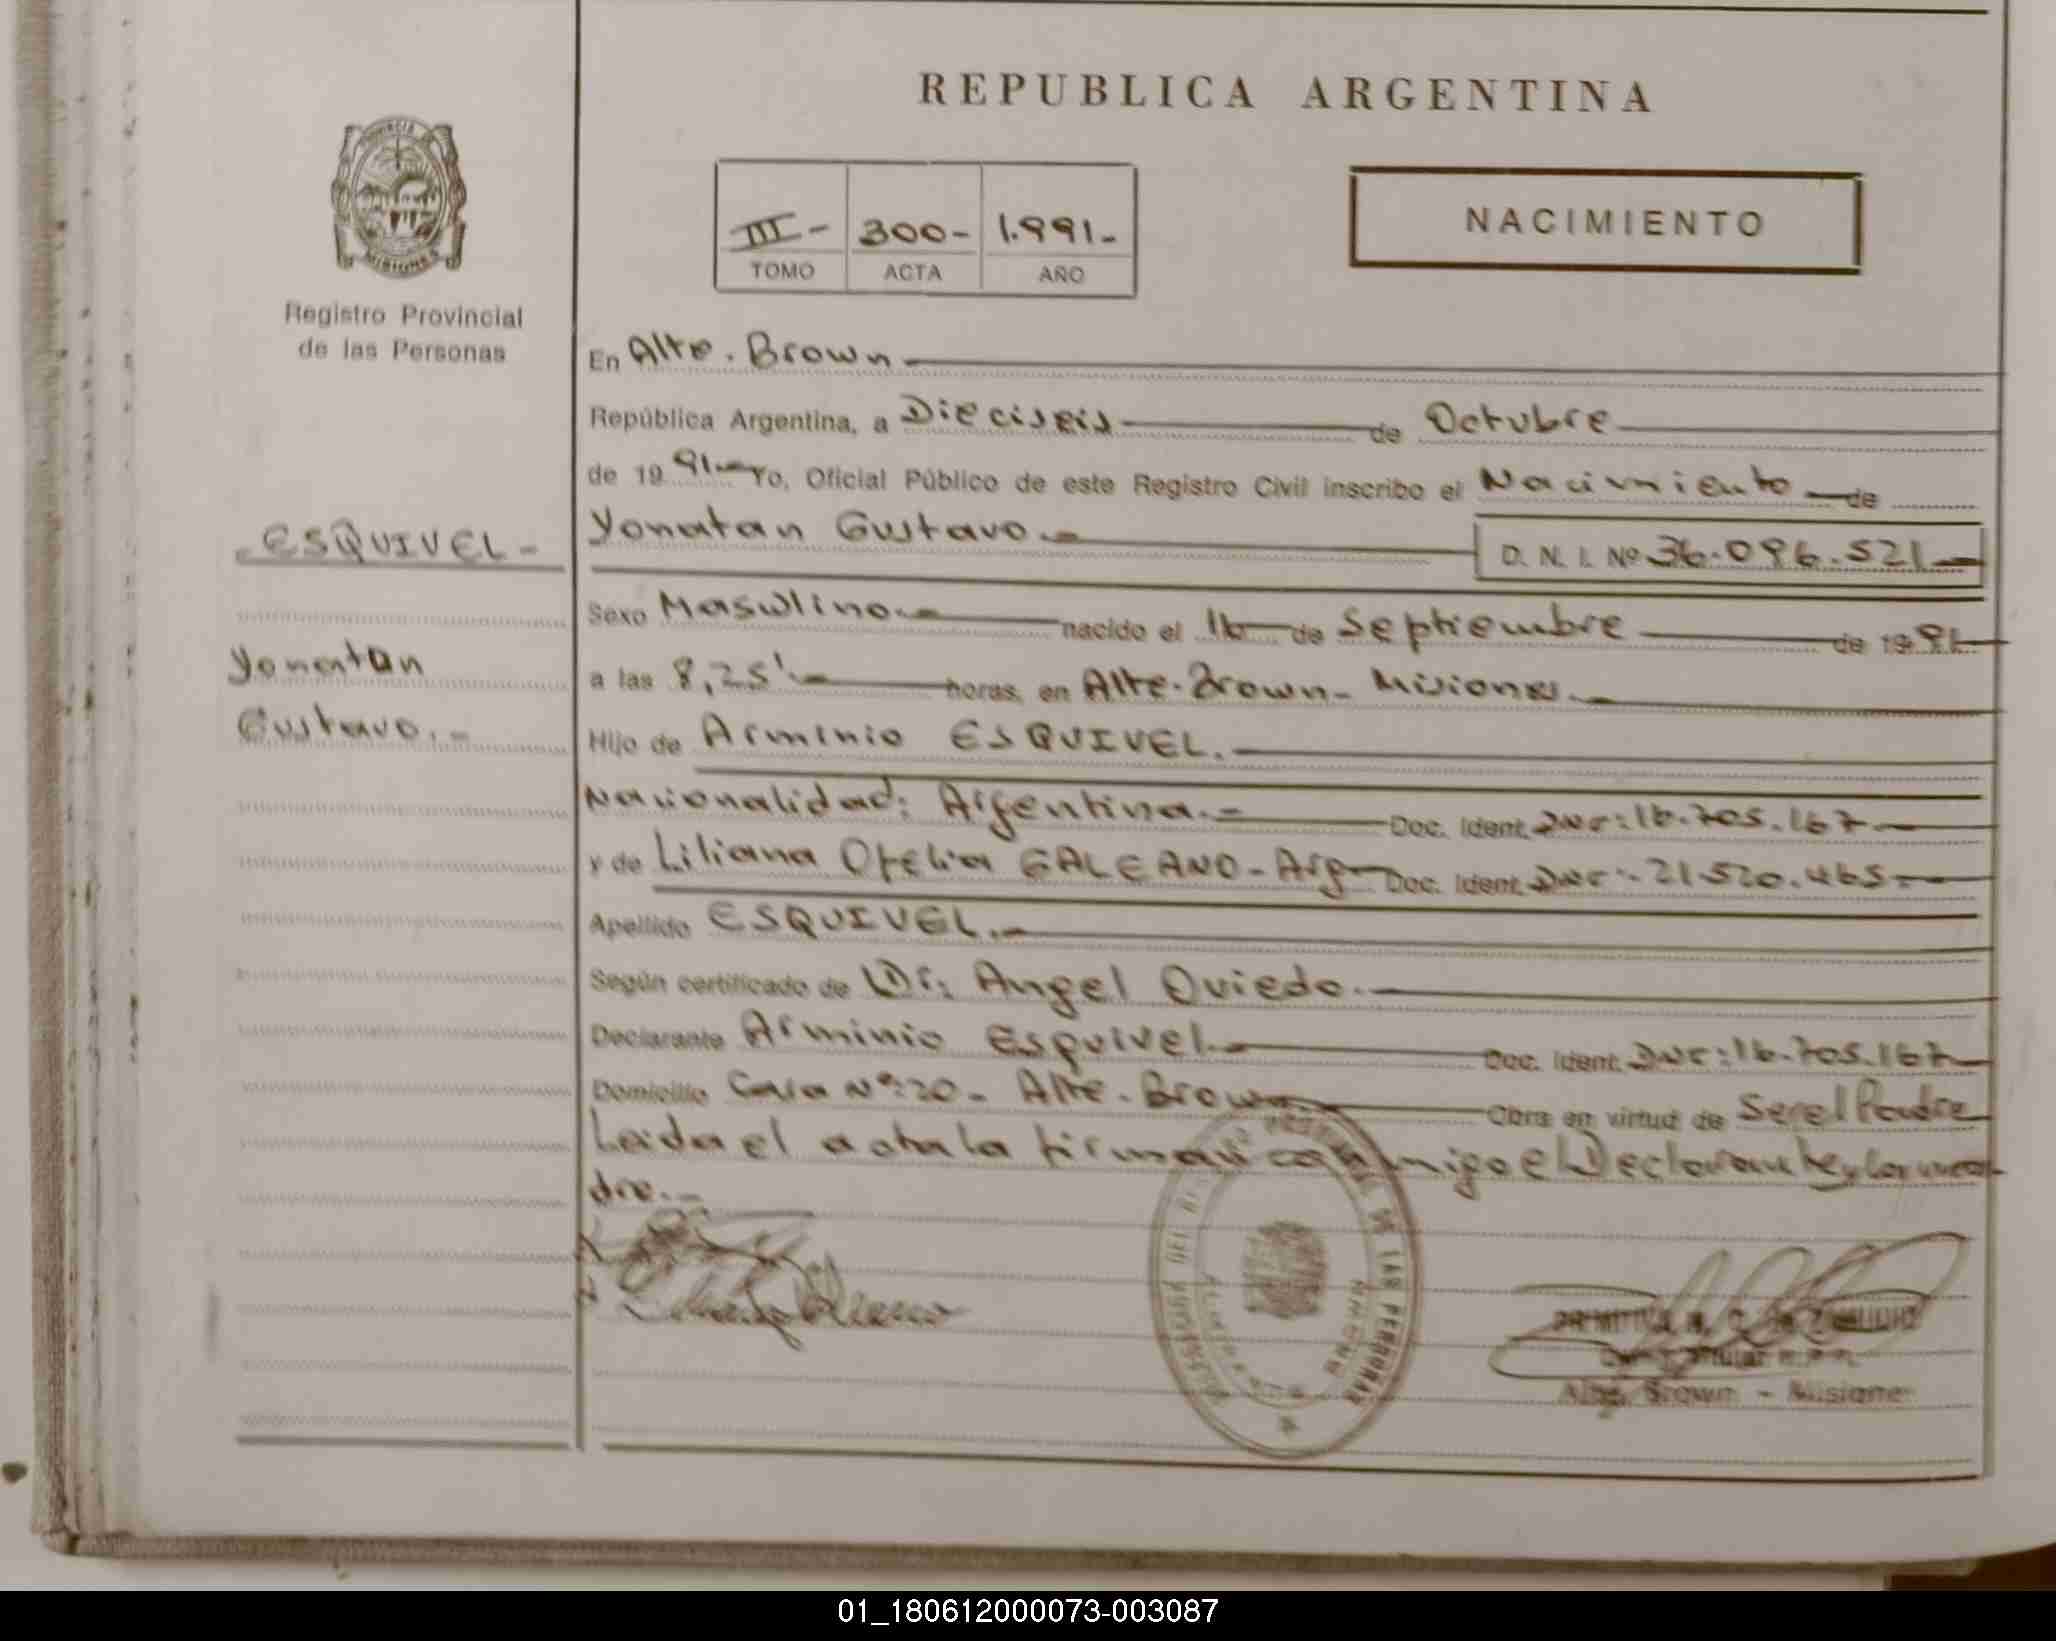 REPUBLICA ARGENTINA
PROVINCIA DE
MISIONES
Registro Provincial
de las Personas
III- 300- 1.991-
TOMO ACTA AÑO
NACIMIENTO
En Alte. Brown
República Argentina, a Dieciseis de Octubre
de 19 91.- Yo, Oficial Público de este Registro Civil inscribo el Nacimiento de
ESQUIVEL-
Yonatan Gustavo.- D. N. I. Nº 36.096.521
Sexo Masculino.- nacido el 16 de Septiembre de 19 91.
Yonatan
Gustavo.-
a las 8,25'.- horas, en Alte. Brown- Misiones.-
Hijo de Arminio ESQUIVEL.-
Nacionalidad: Argentina.- Doc. Ident. DNI: 16.705.167-
y de Liliana Ofelia GALEANO- Arg- Doc. Ident. DNI: 21.520.465.-
Apellido ESQUIVEL.-
Según certificado de Dr: Angel Oviedo.-
Declarante Arminio Esquivel.- Doc. Ident. DNI: 16.705.167-
Domicilio Casa Nº:20- Alte. Brown.- Obra en virtud de Ser el Padre
Leida el acta la firman conmigo el Declarante y la ma-
dre.-
DE LAS PERSONAS
BROWN
Alte. Brown - Misiones
01_180612000073-003087